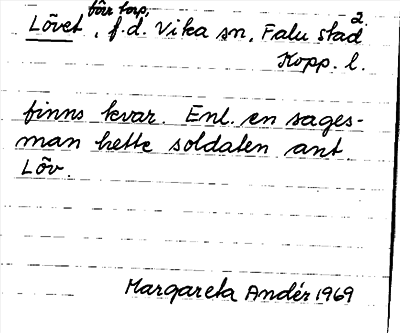 förr torp,
Lövet, f.d. Vika sn, Falu stad 2.
Kopp. l.
finns kvar. Enl. en sages-
man hette soldaten ant.
Löv.
Margareta Andér 1969